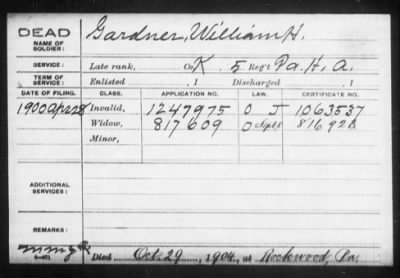 DEAD Gardner, William H.
NAME OF SOLDIER:
SERVICE: Late rank, Co. K. 5 Reg't Pa. H. A.
TERM OF SERVICE: Enlisted , 1 Discharged , 1
DATE OF FILING. CLASS. APPLICATION NO. LAW. CERTIFICATE NO.
1900 Apr Invalid, 1247975 O J 1063537
Widow, 817609 O
Minor,
ADDITIONAL SERVICES:
REMARKS:
Died Oct. 29, 1904, at Rockwood, Pa.